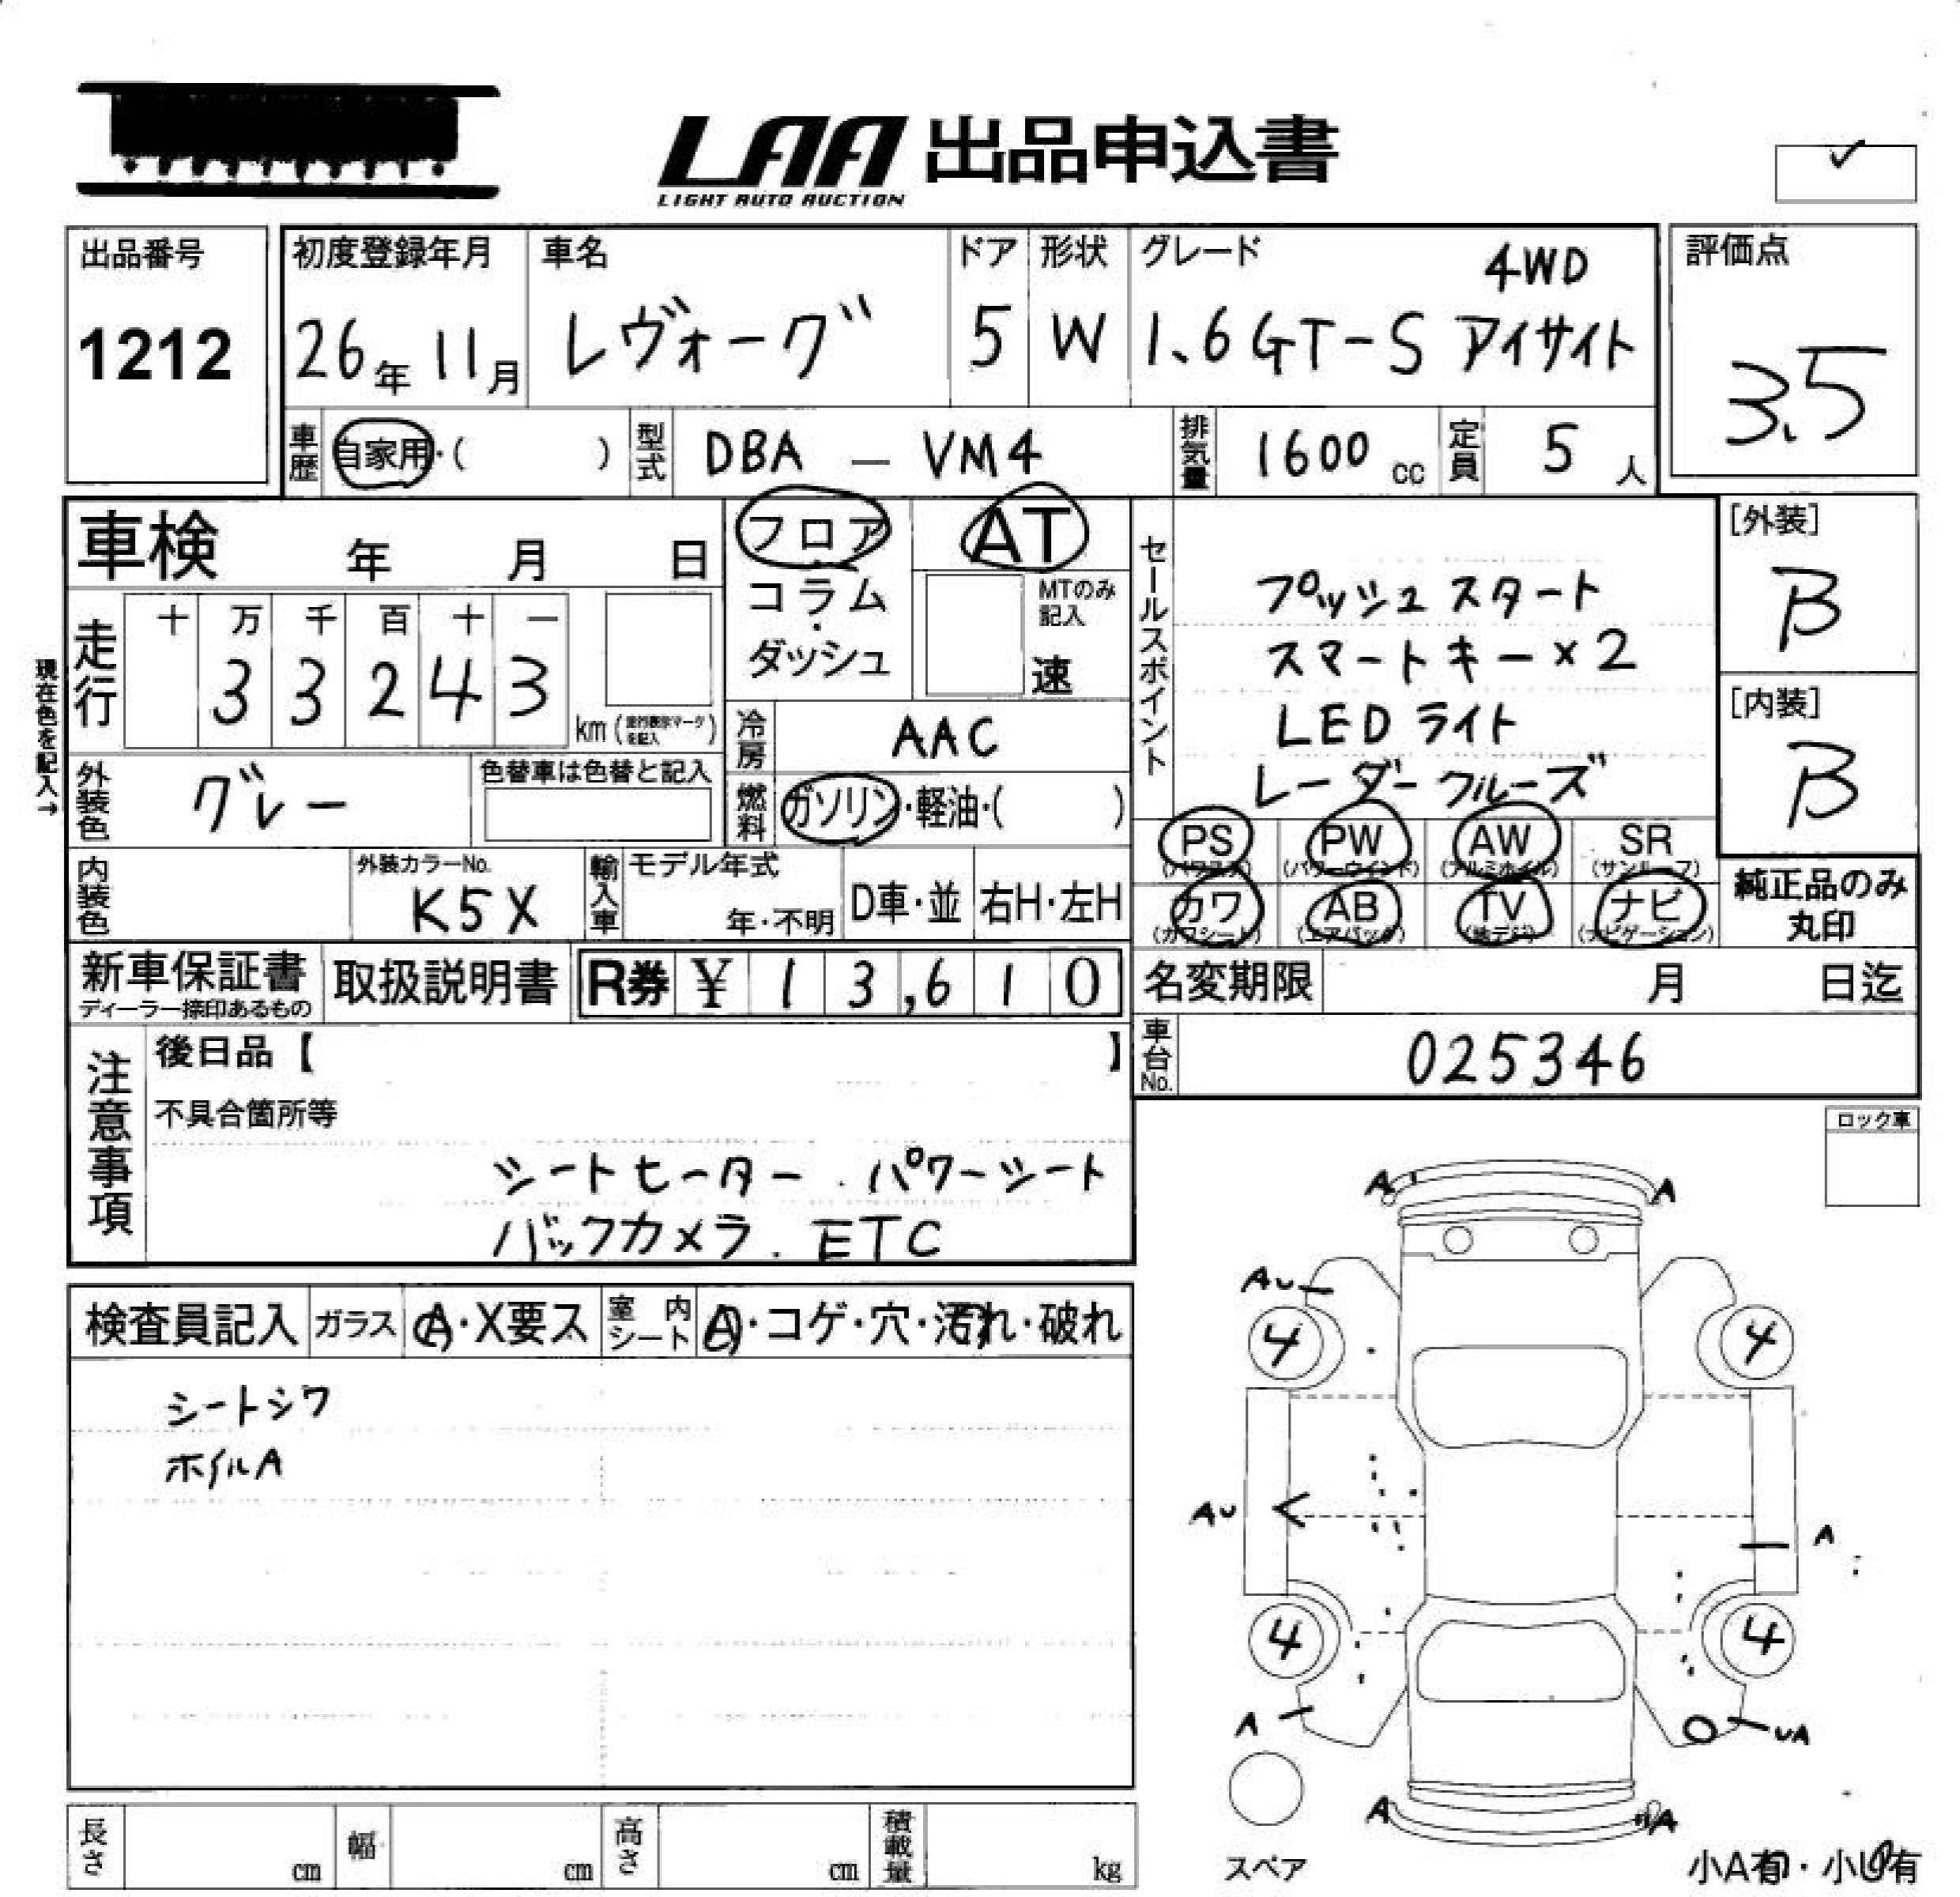 LAA 出品申込書
LIGHT AUTO AUCTION
出品番号
1212
初度登録年月
26年 11月
車名
レヴォーグ
ドア
5
形状
W
グレード
4WD
1.6GT-S アイサイト
評価点
3.5
車歴
自家用・( )
型式
DBA - VM4
排気量
1600 cc
定員
5 人
車検 年 月 日
フロア
コラム
・
ダッシュ
AT
MTのみ
記入
速
現在色を記入→
走行
十 万 千 百 十 一
3 3 2 4 3
km (走行表示マークを記入)
冷房
AAC
外装色
グレー
色替車は色替と記入
燃料
ガソリン・軽油・( )
内装色
外装カラーNo.
K5X
輸入車
モデル年式
年・不明
D車・並
右H・左H
セールスポイント
プッシュスタート
スマートキー×2
LEDライト
レーダークルーズ
[外装]
B
[内装]
B
PS
(パワステ)
PW
(パワーウインド)
AW
(アルミホイル)
SR
(サンルーフ)
カワ
(カワシート)
AB
(エアバック)
TV
(地デジ)
ナビ
(ナビゲーション)
純正品のみ
丸印
新車保証書
ディーラー捺印あるもの
取扱説明書
R券 ¥ 1 3,6 1 0
名変期限 月 日迄
車台No.
025346
注意事項
後日品【 】
不具合箇所等
シートヒーター.パワーシート
バックカメラ.ETC
ロック車
検査員記入
ガラス
A・X要ス
室内シート
A・コゲ・穴・汚れ・破れ
シートシワ
ホイルA
A A
AU
4 4
AU
A
4 4
A
UA
A
A
スペア
小A有・小U有
長さ cm
幅 cm
高さ cm
積載量 kg